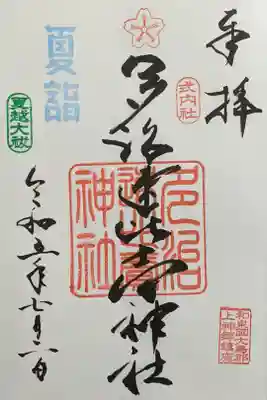 奉拝
式内社
多治速比売神社
多治
速比売
神社
和泉國大鳥郡
上神郷鎮座
夏詣
夏越大祓
令和五年七月六日